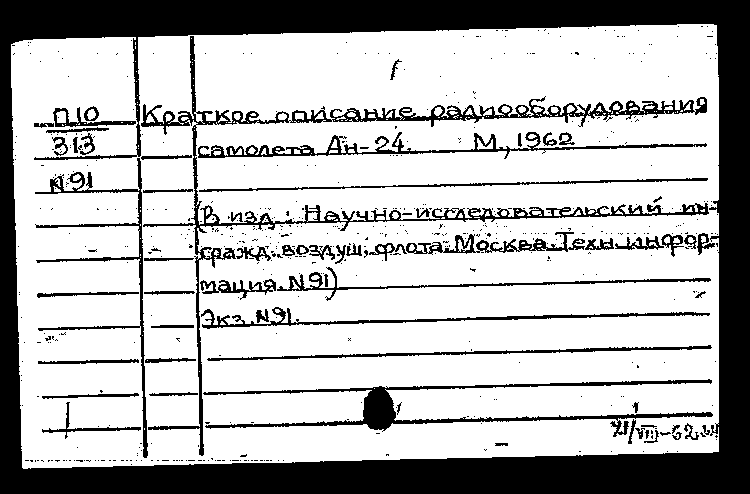 П10 Краткое описание радиооборудования
313 самолета Ан-24. М., 1962
N91
(В изд.: Научно-исследовательский ин-т
гражд. воздуш. флота. Москва. Техн. инфор-
мация. N91)
Экз. N91.
21/VIII-62